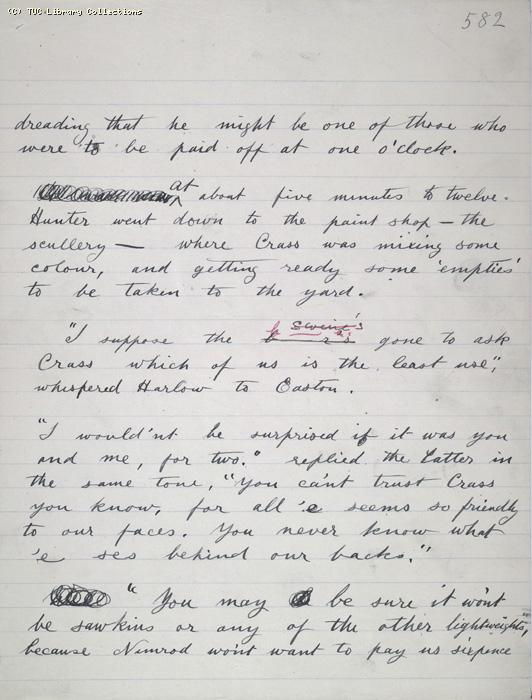 (C) TUC Library Collections
582
dreading that he might be one of those who
were to be paid off at one o'clock.
at about five minutes to twelve.
Hunter went down to the paint shop — the
scullery — where Crass was mixing some
colour, and getting ready some 'empties'
to be taken to the yard.
"I suppose the b r's gone to ask
Crass which of us is the least use",
whispered Harlow to Easton.
"I would'nt be surprised if it was you
and me, for two." replied the latter in
the same tone, "You can't trust Crass
you know, for all 'e seems so friendly
to our faces. You never know what
'e ses behind our backs."
"You may be sure it wont
be sawkins or any of the other lightweights",
because Nimrod won't want to pay us sixpence